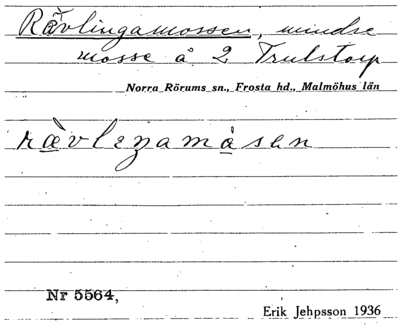 Rävlingamossen, mindre
mosse å 2 Trulstorp
Norra Rörums sn., Frosta hd., Malmöhus län
rævleŋamåsen
Nr 5564,
Erik Jehpsson 1936